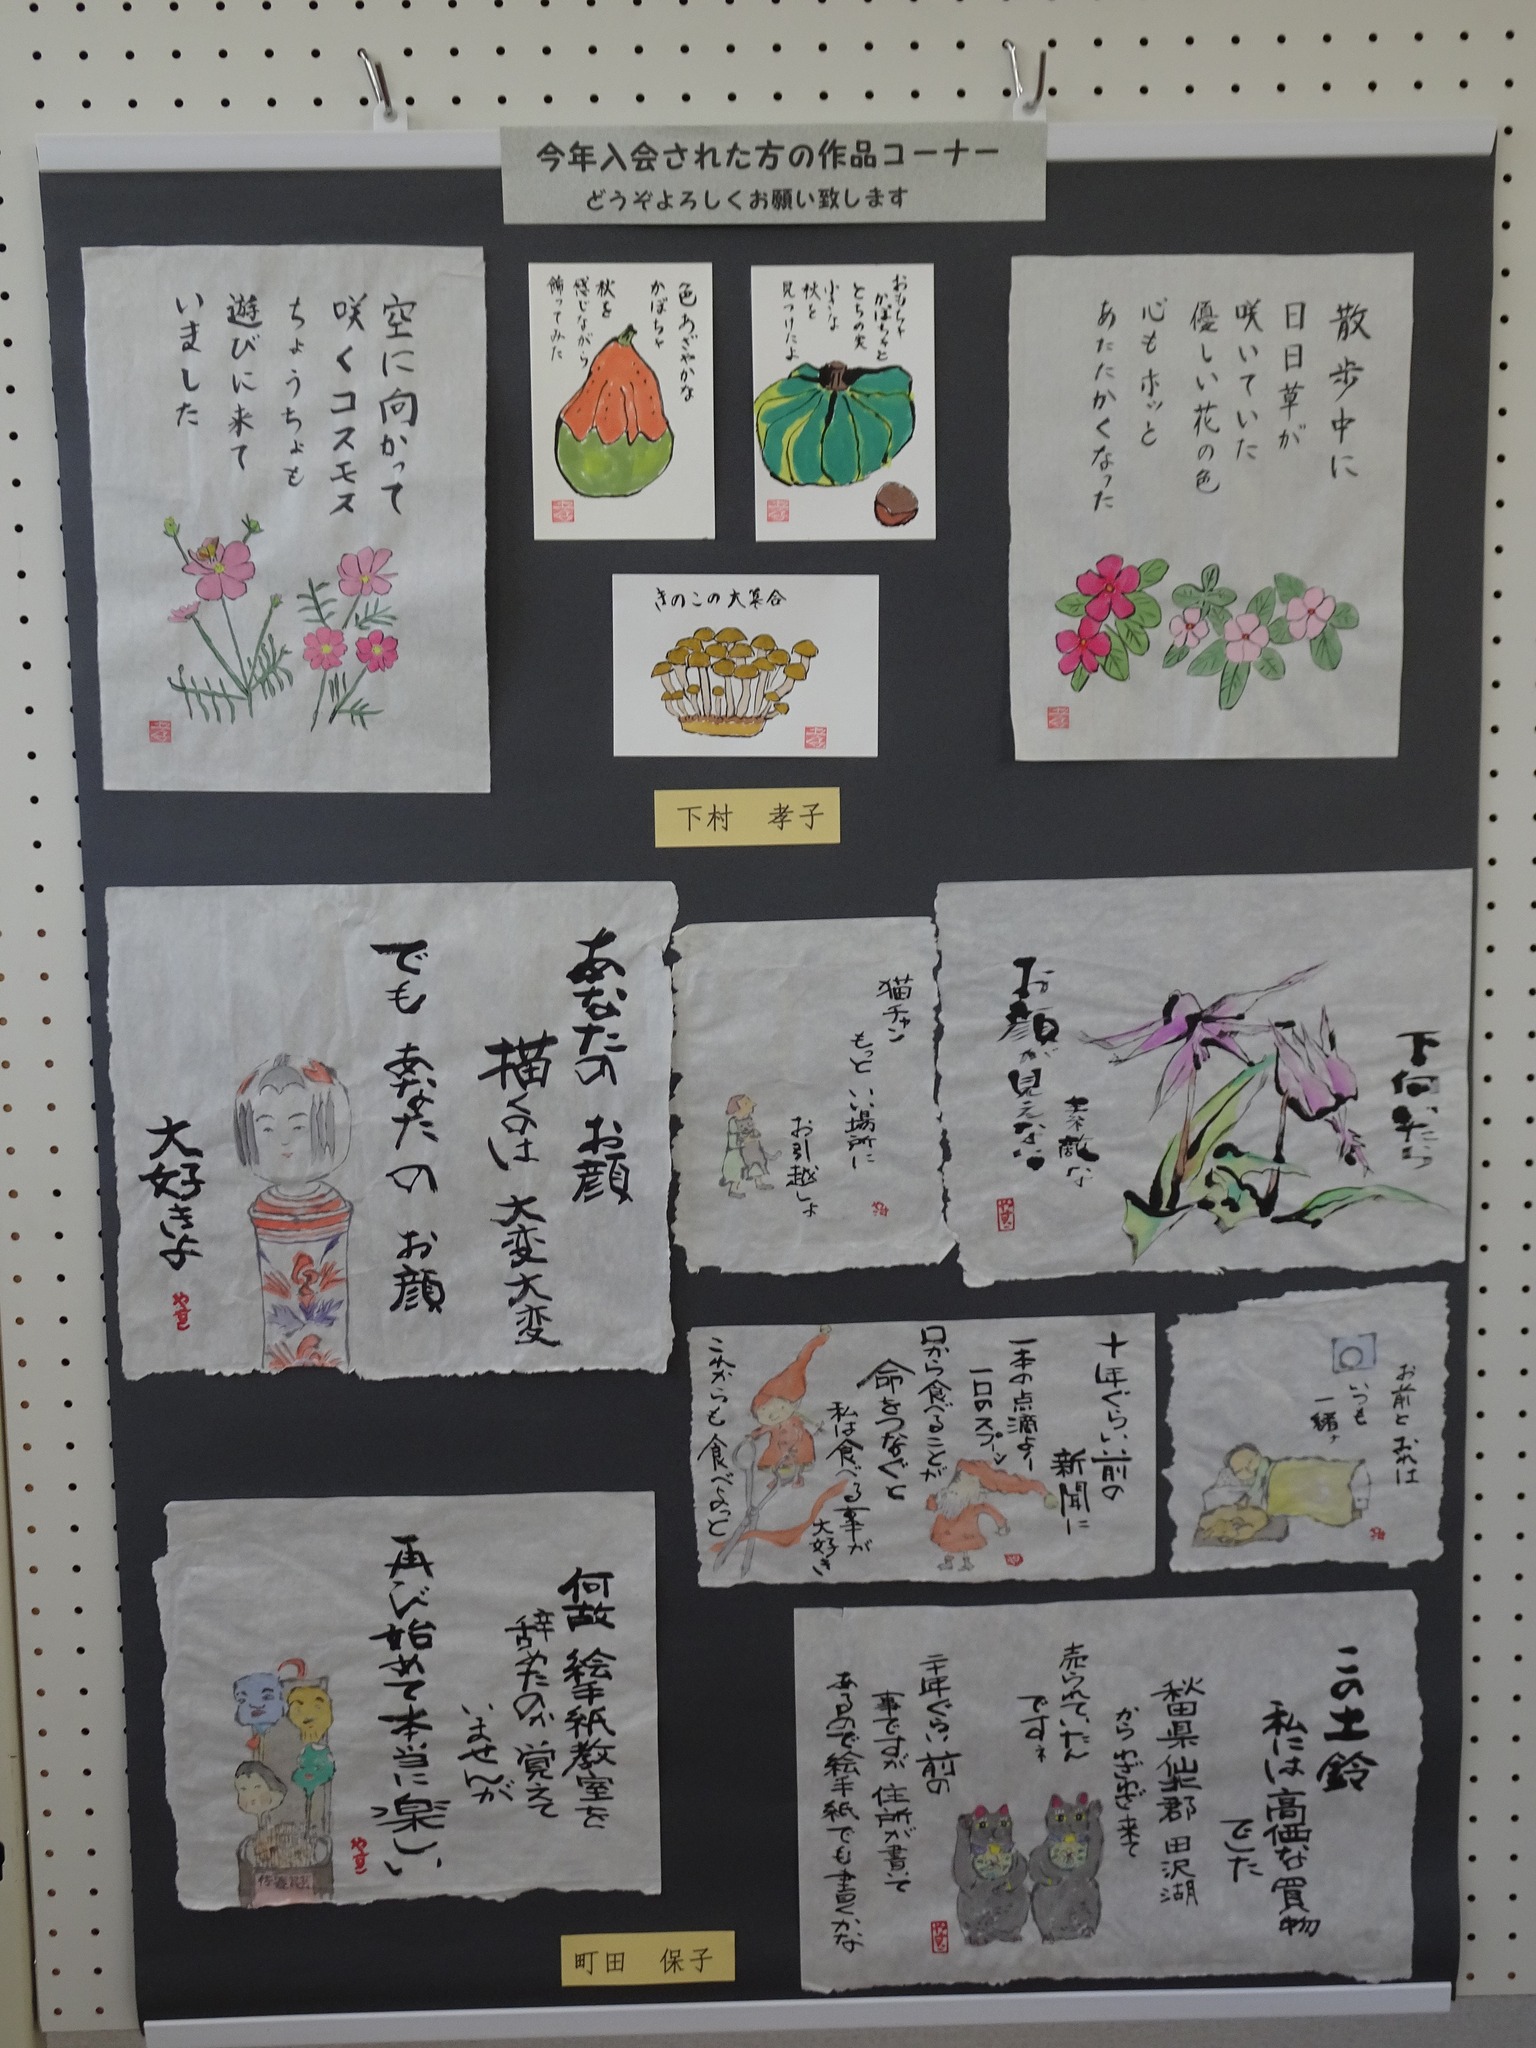 今年入会された方の作品コーナー
どうぞよろしくお願い致します
空に向かって
咲くコスモス
ちょうちょも
遊びに来て
いました
色あざやかな
かぼちゃ
秋を
感じながら
飾ってみた
おもちゃ
かぼちゃと
とちの実
小さな
秋を
見つけたよ
散歩中に
日日草が
咲いていた
優しい花の色
心もホッと
あたたかくなった
きのこの大集合
下村 孝子
あなたの お顔
描くのは 大変大変
でも あなたの お顔
大好きよ
やすこ
猫チャン
もっと いい場所に
お引越しょ
下向いたら
素敵な
お顔が見えない
やすこ
十年ぐらい前の
新聞に
一本の点滴より
一口のスプーン
口から食べることが
命をつなぐと
私は食べる事が
大好き
これからも 食べよっと
や
お前とおれは
いつも
一緒サ
何故 絵手紙教室を
辞めたのか 覚えて
いませんが
再び始めて本当に楽しい
やすこ
この土鈴
私には高価な買物
でした
秋田県仙北郡 田沢湖
から わざわざ来て
売られていたん
ですネ
二十年ぐらい前の
事ですが 住所が書いて
あるので絵手紙でも書くかな
やすこ
町田 保子